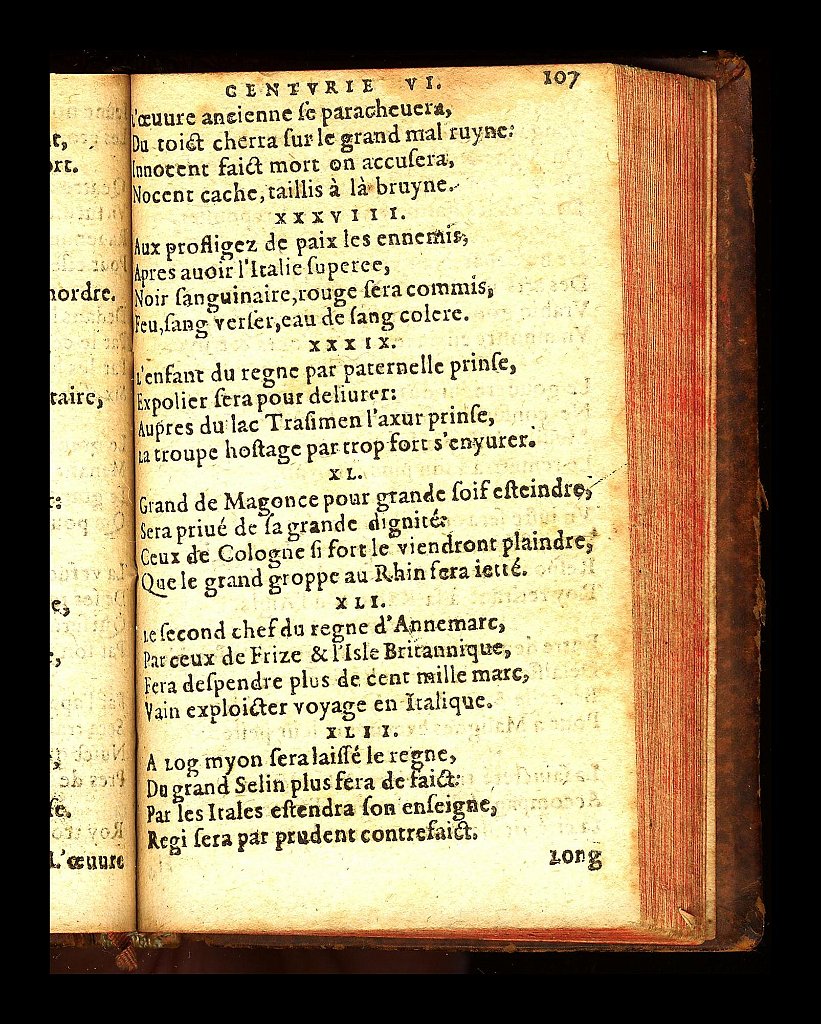 CENTVRIE VI. 107
L'œuure ancienne ſe paracheuera,
Du toict cherra ſur le grand mal ruyne:
Innocent faict mort on accuſera,
Nocent cache, taillis à là bruyne.
XXXVIII.
Aux profligez de paix les ennemis,
Apres auoir l'Italie ſuperee,
Noir ſanguinaire, rouge ſera commis,
Feu, ſang verſer, eau de ſang colere.
XXXIX.
L'enfant du regne par paternelle prinſe,
Expolier ſera pour deliurer:
Aupres du lac Traſimen l'axur prinſe,
La troupe hoſtage par trop fort s'enyurer.
XL.
Grand de Magonce pour grande ſoif eſteindre,
Sera priué de ſa grande dignité:
Ceux de Cologne ſi fort le viendront plaindre,
Que le grand groppe au Rhin ſera ietté.
XLI.
Le ſecond chef du regne d'Annemarc,
Par ceux de Frize & l'Isle Britannique,
Fera deſpendre plus de cent mille marc,
Vain exploicter voyage en Italique.
XLII.
A Log myon ſera laiſſé le regne,
Du grand Selin plus fera de faict:
Par les Itales eſtendra ſon enſeigne,
Regi ſera par prudent contrefaict.
Long
ordre.
taire,
L'œuure